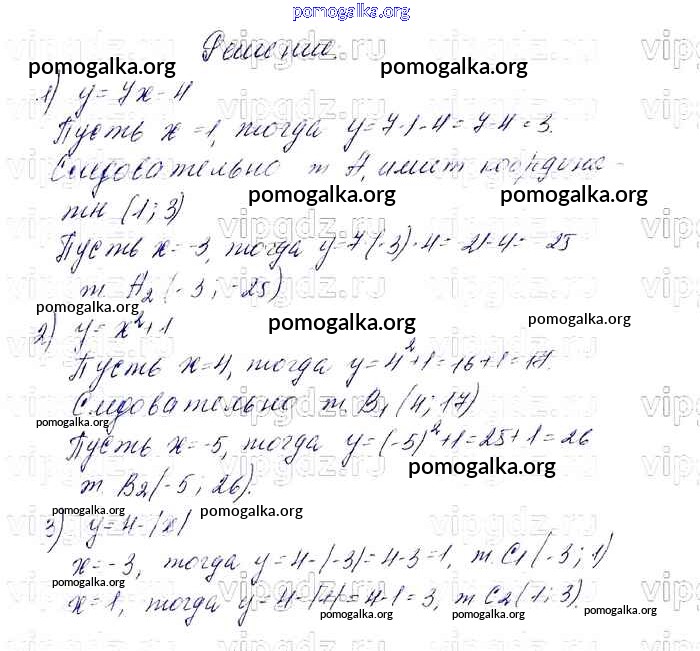 pomogalka.org
Решение
pomogalka.org pomogalka.org
1) y = 7x - 4
Пусть x = 1, тогда y = 7·1 - 4 = 7 - 4 = 3.
Следовательно т A₁ имеет координа-
pomogalka.org pomogalka.org
ты (1; 3)
Пусть x = -3, тогда y = 7·(-3) - 4 = -21 - 4 = -25
т. A₂ (-3; -25)
pomogalka.org pomogalka.org pomogalka.org
2) y = x² + 1
Пусть x = 4, тогда y = 4² + 1 = 16 + 1 = 17.
Следовательно т. B₁ (4; 17)
pomogalka.org
Пусть x = -5, тогда y = (-5)² + 1 = 25 + 1 = 26
pomogalka.org
т. B₂ (-5; 26).
pomogalka.org pomogalka.org
3) y = 4 - |x|
x = -3, тогда y = 4 - |-3| = 4 - 3 = 1, т. C₁ (-3; 1)
pomogalka.org
x = 1, тогда y = 4 - |1| = 4 - 1 = 3, т C₂ (1; 3).
pomogalka.org pomogalka.org pomogalka.org